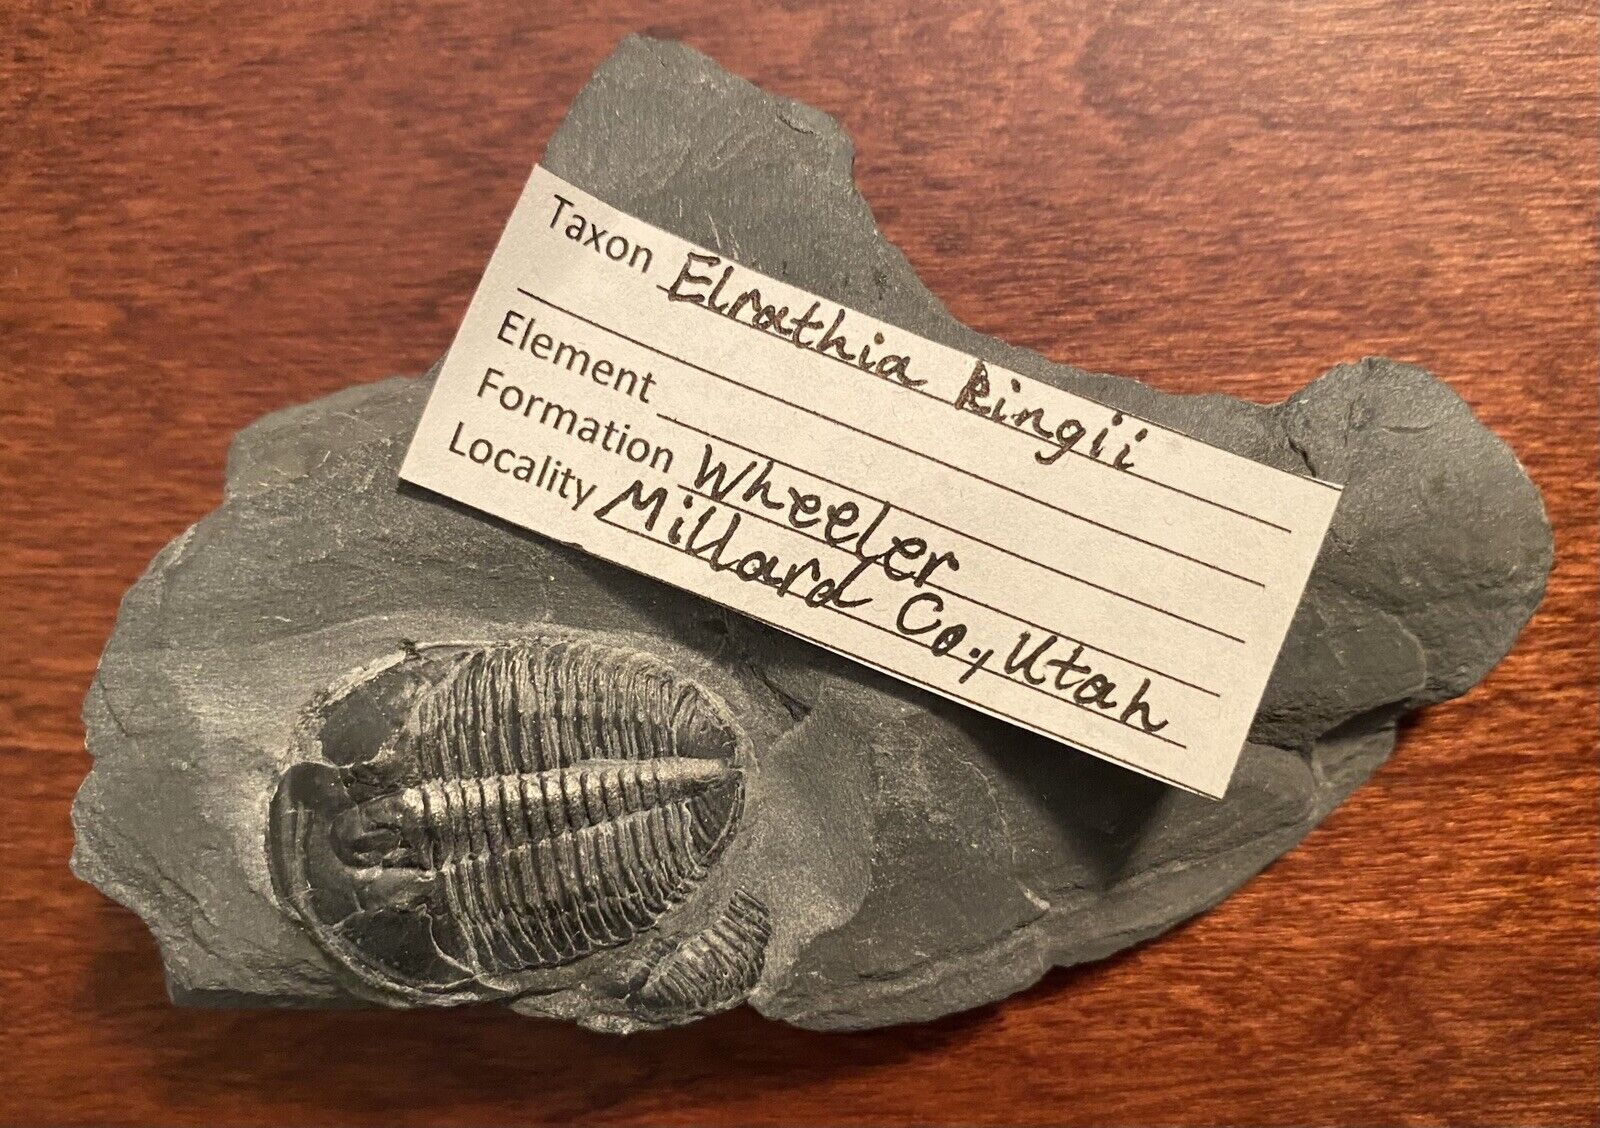 Taxon Elrathia kingii
Element
Formation Wheeler
Locality Millard Co., Utah